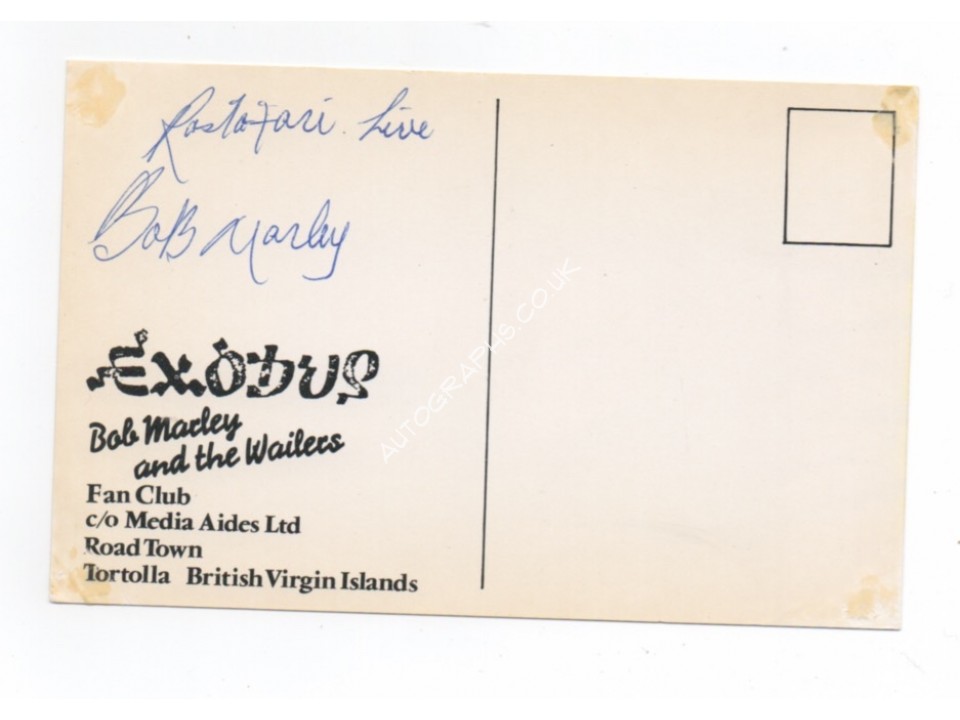 Rastafari. Live
Bob Marley
Exodus
Bob Marley
and the Wailers
Fan Club
c/o Media Aides Ltd
Road Town
Tortolla British Virgin Islands
AUTOGRAPHS.CO.UK